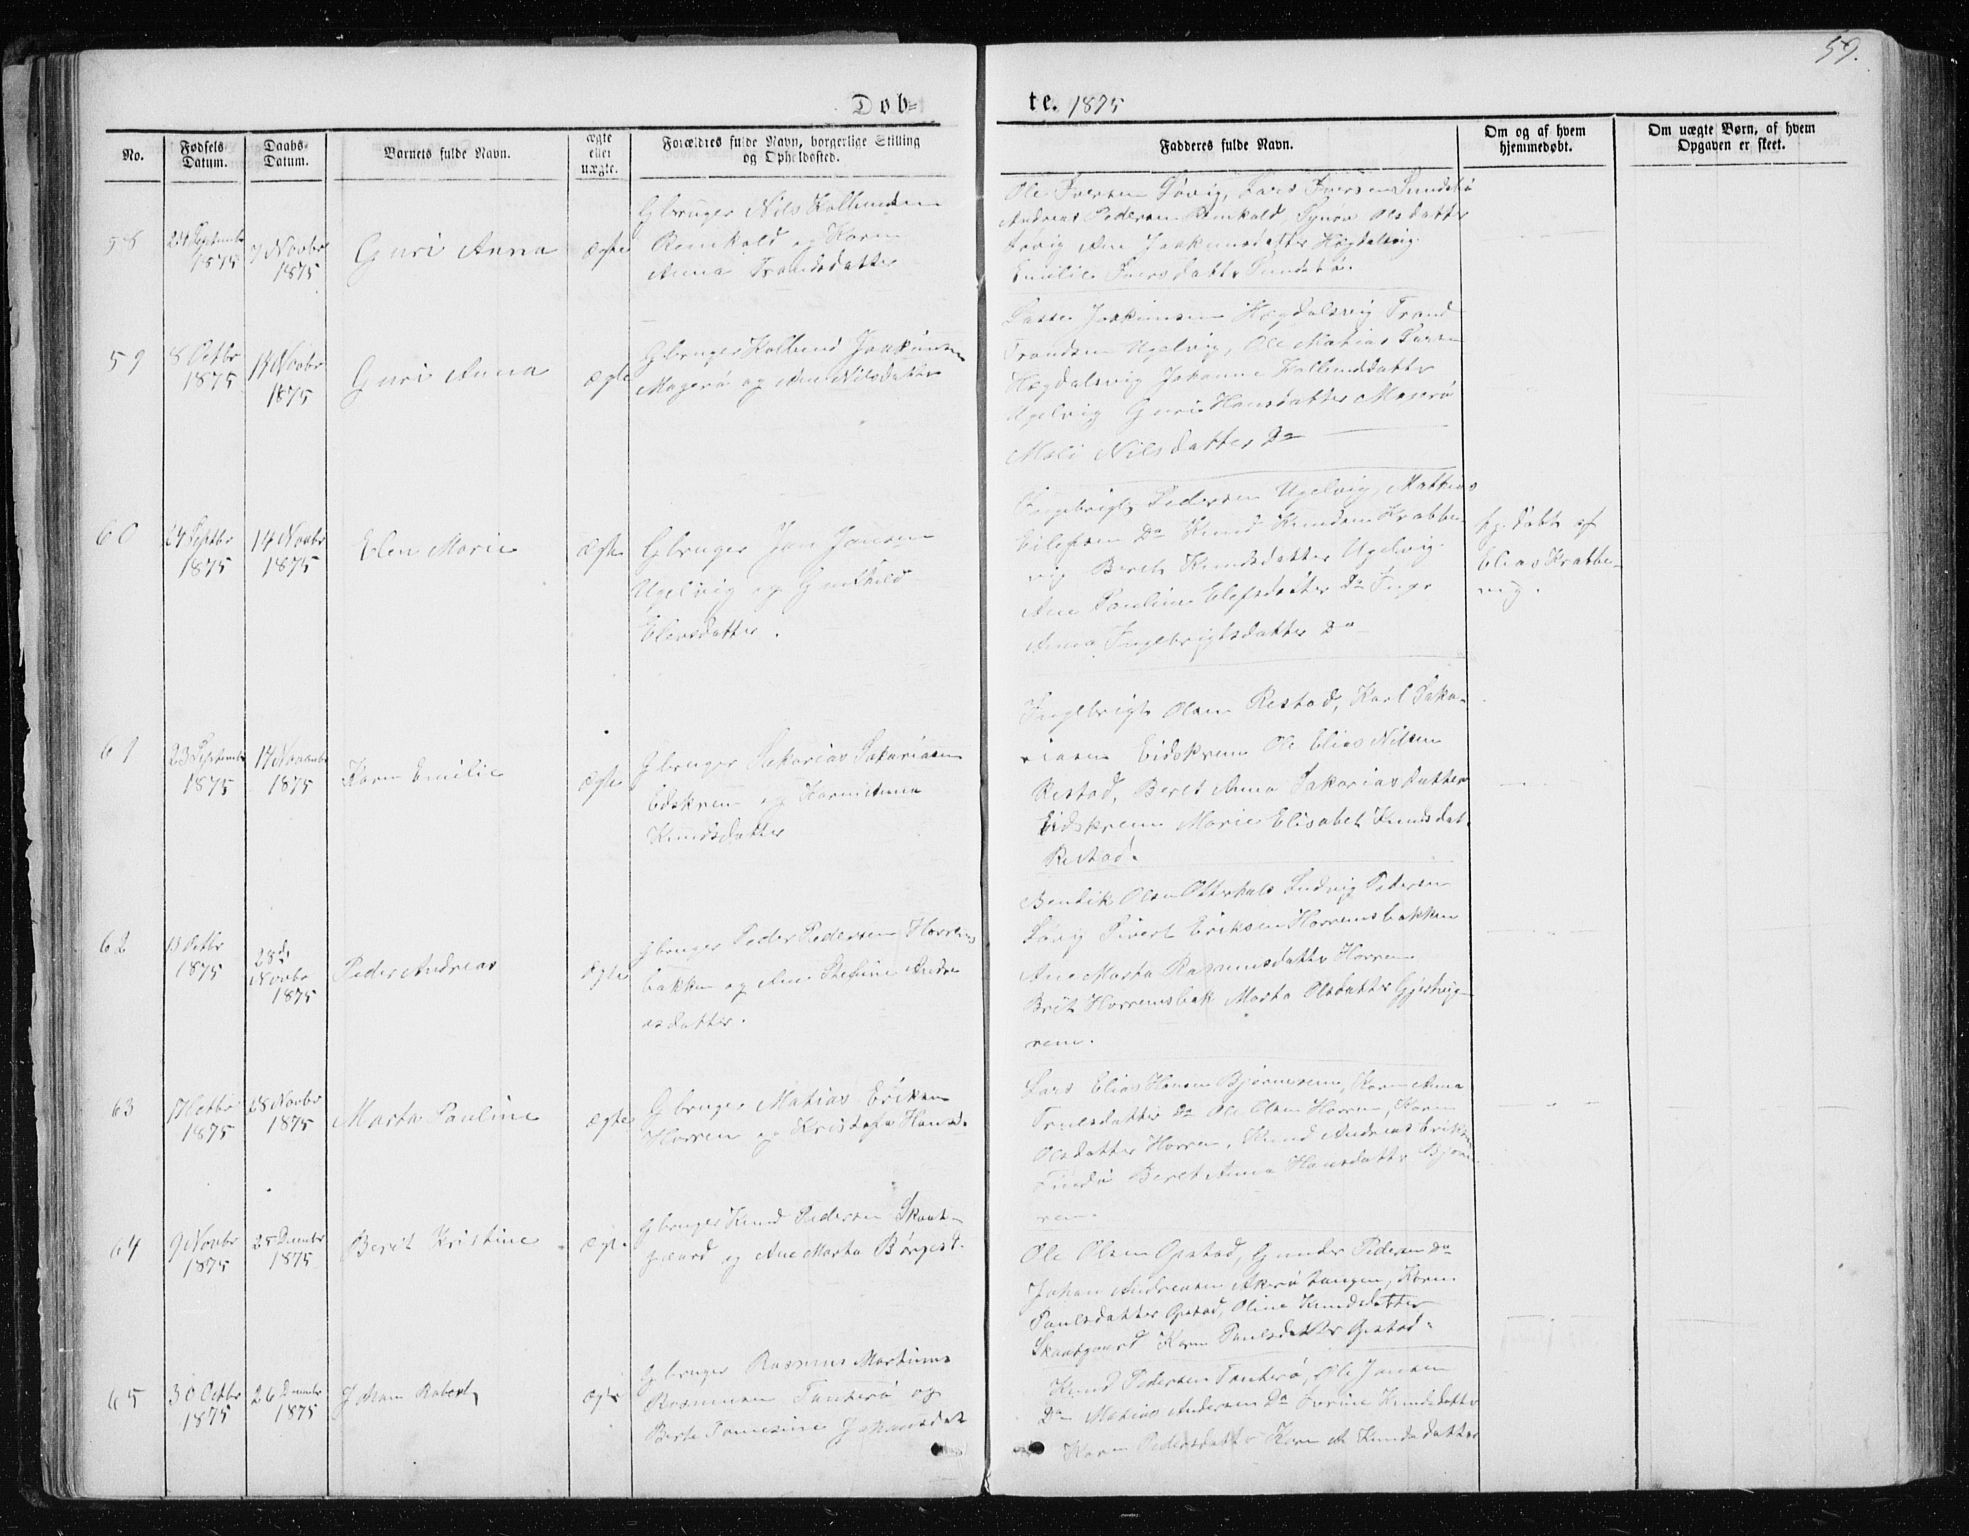 59.
Døb-
te. 1875
No.
Fødsels Datum.
Daabs- Datum.
Barnets fulde Navn.
ægte eller uægte.
Forældres fulde Navn, borgerlige Stilling
og Opholdssted.
Faddernes fulde Navn.
Om og af hvem
hjemmedøbt.
Om uægte Børn, af hvem
Opgaven er skeet.
58
24 Septembr
1875
7 Novbr
1875
Guri Anna
ægte
Gbruger Nils
og Karen
Anna Trondsdatter
Ole Iversen Løvig, Lars Iversen Sundsbø
Andreas Pedersen Synøv Olsdatter
Løvig Ane Joakimsdatter Hægdalsvig
Emilie Iversdatter Sundsbøen
59
8 Octbr
1875
14 Novbr
1875
Guri Anna
ægte
Gbruger Kolbend Joakimsen
Magerø og Ane Nilsdatter
Lasse Joakimsen Hægdalsvig Trond
Trondsen Ugelvig, Ole Matias Larsen
Hægdalsvig Johanne Kolbendsdatter
Ugelvig Guri Hansdatter Magerø
Mali Nilsdatter Do
60
24 Septbr
1875
14 Novbr
1875
Elen Marie
ægte
Gbruger Jon Jonsen
Ugelvig og Gunhild
Elevsdatter.
Ingebrigt Pedersen Ugelvig, Mathias
Eilefsen Do Knud Knudsen Krabbe-
vig Beret Knudsdatter Ugelvig
Ane Pauline Elefsdatter Do Inger
Anna Ingebrigtsdatter Do
hj. døbt af
Elias Krabbe-
vig.
61
23 Septembr
1875
14 November
1875
Karen Emilie
ægte
Gbruger Sakarias Sakariasen
Eidskrem og Karen Anna
Knudsdatter
Ingebrigt Olsen Restad, Karl Saka-
riasen Eidskrem Ole Elias Nilsen
Restad, Beret Anna Sakariasdatter
Eidskrem Marie Elisabet Knudsdat.
Restad.
62
13 Octbr
1875
28de
Novbr
1875
Peder Andreas
ægte
Gbruger Peder Pedersen Horrems
bakken og Ane Stefine Andre
asdatter.
Bendik Olsen Otterhals Ludvig Pedersen
Løvig Sivert Eriksen Horremsbakken
Ane Marta Rasmusdatter Horrem
Brit Horremsbak Marta Olsdatter
rem.
63
17 Octbr
1875
28 Novbr
1875
Marta Pauline
ægte
Gbruger Matias Eriksen
Horren og Kristofa Hansd.
Lars Elias Hansen Bjørnerem, Karen Anna
Trulsdatter Do Ole Olsen Horrem, Karen
Olsdatter Horrem, Knud Andreas Eriksen
Beret Anna Hansdatter Bjørne
rem.
64
9 Novbr
1875
25 Decembr
1875
Berit Kristine
ægte
Gbruger Knud Pedersen Skaat-
gaard og Ane Marta Børgesd.
Ole Olsen Opstad, Gunder Pedersen Do
Johan Andreasen Akerø Tangen, Karen
Paulsdatter Opstad, Oline Knudsdatter
Skaatgaard Karen Paulsdatter Opstad.
65
30 Octbr
1875
26 Decembr
1875
Johan Robert
ægte
Gbruger Rasmus Martinus
Rasmussen Tauterø og
Berte Tomesine Johansdat
Knud Pedersen Tauterø, Ole Jonsen
Do Matias Andersen Do Serine Knudsdatter
Karen Pedersdatter Karen A Knudsdatter